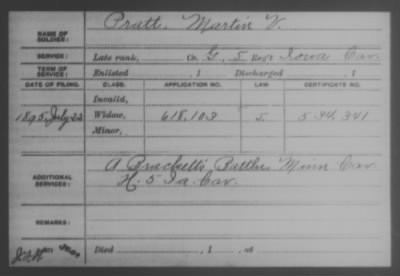 NAME OF SOLDIER: Pratt, Martin V.
SERVICE: Late rank, Co. G, 5 Reg't Iowa Cav.
TERM OF SERVICE: Enlisted , 1 Discharged , 1
DATE OF FILING. CLASS. APPLICATION NO. LAW. CERTIFICATE NO.
Invalid,
1895, July 22 Widow, 618,103 J. 534,341
Minor,
ADDITIONAL SERVICES: A Brackett's Battln. Minn Cav
H. 5 Ia. Cav.
REMARKS:
Died , 1 , at